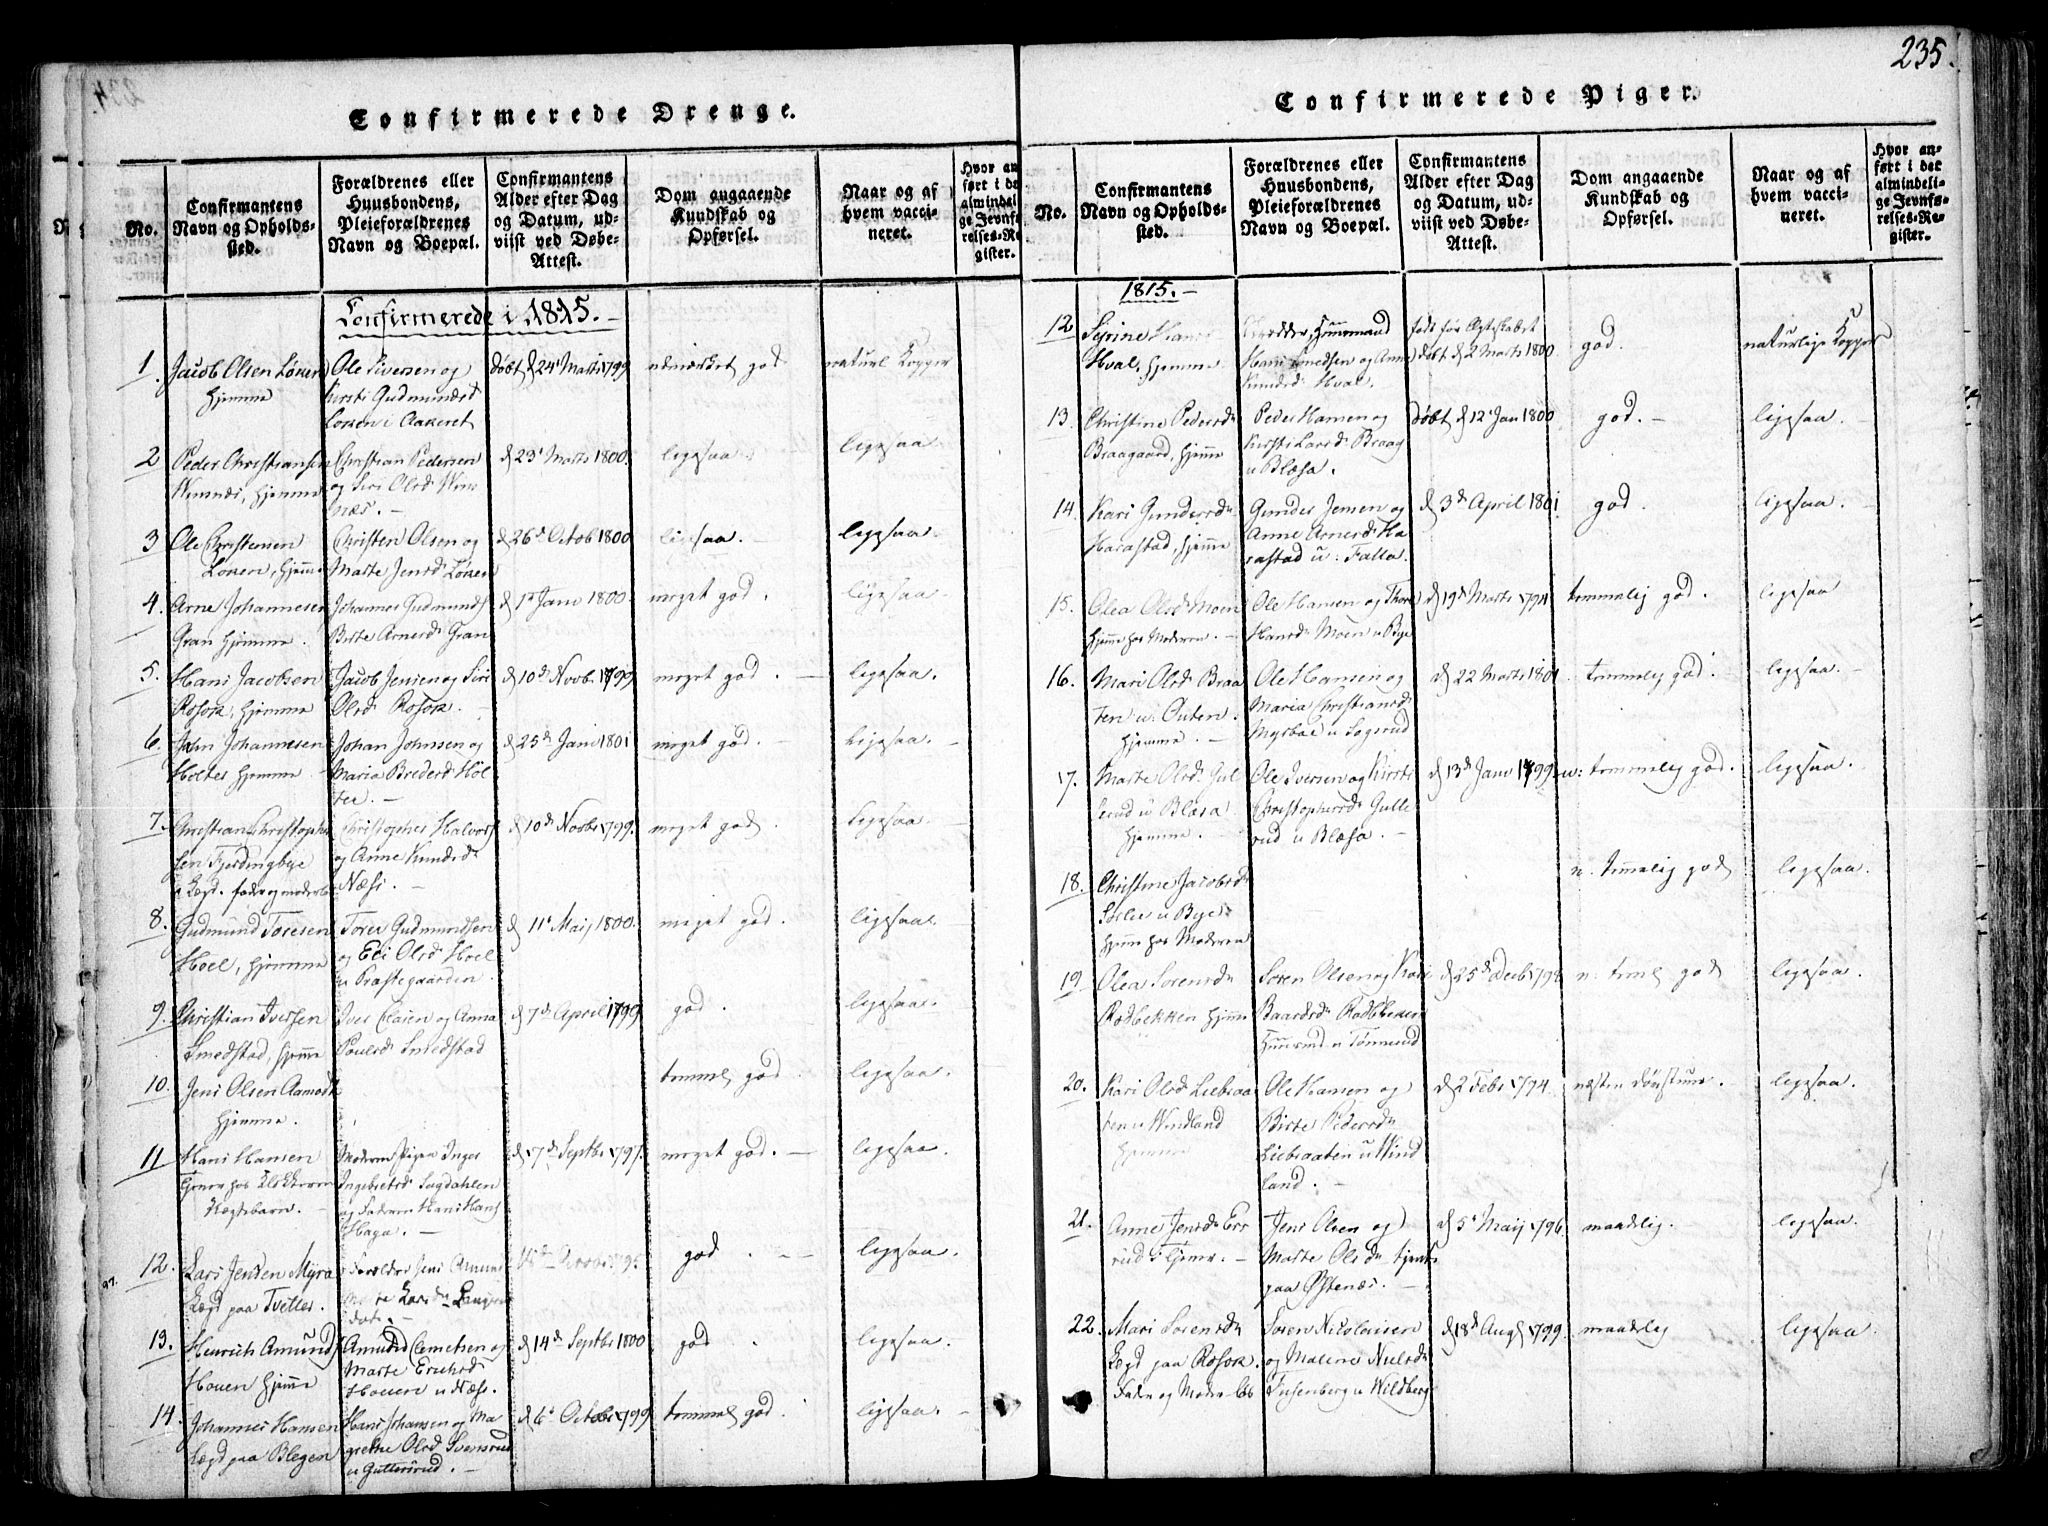 235.
Confirmerede Drenge.
No.
Confirmantens
Navn og Opholds-
sted.
Forældrenes eller
Huusbondens,
Pleieforældrenes
Navn og Boepæl.
Confirmantens
Alder efter Dag
og Datum, ud-
viist ved Døbe-
Attest.
Dom angaaende
Kundskab og
Opførsel.
Naar og af
hvem vacci-
neret.
Confirmerede i 1815.
1.
Jacob Olsen Løken
hjemme
Ole Siversen og
Kirsti Gudmundsd
Løken i Aakeret
døbt d 24 Marts 1799
udmærket god
naturl Kopper
2
Peder Christiansen
hjemme
Christian Pedersen
og Siri Olsd
næs. -
d 23 Marts 1800.
ligesaa.
ligesaa.
3
Ole Christensen
Løken, hjemme
Christen Olsen og
Marte Jensd Løken
d 26d Octob 1800
ligesaa.
ligesaa.
4.
Arne Johannesen
Gran hjemme.
Johannes Gudmunds
Birte Arnesd Gran
d 1st Janu 1800.
meget god.
ligesaa.
5.
Hans Jacobsen
Rosok, hjemme
Jacob Jensen og Siri
Olsd Rosok.
d 10d Novb. 1799
meget god. -
ligesaa.
6.
John Johannesen
Holter hjemme
Johan Johnsen og
Maria Bredesd Hol
ter. -
d 25d Janu 1801
meget god.
ligesaa.
7.
Christian Christophe
sen Fjerdingbye
Lægd.
Christopher Halvors
og Anne Knudsd
Næss. -
d 10d Novbr 1799.
meget god.
ligesaa.
8.
Gudmund Toresen
Hoel, hjemme
Tores Gudmundsen
og Eli Olsd Hoel
u Præstegaarden
d 11 Maij 1800.
meget god.
ligesaa.
9.
Christian Iversen
Smedstad, hjemme
Iver Clasen og Anna
Poulsd Smedstad
d 7d April 1799
god.
ligesaa.
10.
Jens Olsen Aamodt
hjemme.
temmel god.
ligesaa.
11
Hans Hansen
Lægdsbarn. -
Moderen Pigen Inger
Ingebretsd Sagdahlen
og Faderen Hans Hans
Haga. -
d 7d Septbr 1797.
meget god. -
ligesaa.
12.
Lars Jensen Myra
Lægd paa Tvetter.
Forældre Jens Amund
1795
god.
ligesaa.
13.
Henrich Amunds
Houen hjemme
Amund Clemetsen og
Marte Erichsd
Houen u Næss.
d 14d Septbr 1800
god.
ligesaa.
14.
Johannes Hansen
Lægd paa Blegen
Hans Johansen og Ma
grethe Olsd Svensrud
u Gutterørud. -
d 6 Octobr 1799
temmel god.
ligesaa.
Confirmerede Piger.
No.
Confirmantens
Navn og Opholds-
sted.
Forældrenes eller
Huusbondens,
Pleieforældrenes
Navn og Boepæl.
Confirmantens
Alder efter Dag
og Datum, ud-
viist ved Døbe-
Attest.
Dom angaaende
Kundskab og
Opførsel.
Naar og af
hvem vacci-
neret.
Hvor an-
ført i det
almindeli-
ge Jevnfø-
relses-Re-
gister.
1815. -
12
Syrine Hans
Hval, hjemme
Forældre, Huusmand
Hans Smedsen og Anne
Knudsd Hval.
født før Ægteskabet
døbt d 2 Marts 1800
god.
naturlige Kopper
13.
Christine Pedersd
Braagaard, hjemme
Peder Hansen og
Kirsti Larsd Braag
u Blæsa.
døbt d 12 Jan 1800
god. -
ligesaa.
14.
Kari Gundersd
Harastad, hjemme
Gunder Jensen og
Anne Arnesd Ha
rastad u: Falla.
d 3d April 1801.
god.
ligesaa.
15.
Olea Olsd Moen
hjemme hos Moderen. -
Ole Hansen og Thore
Hansd Moen u Bye
d 19d Marts 1794
temmelig god.
ligesaa
16.
Mari Olsd Braa
ten u. Outen.
hjemme. -
Ole Hansen og
Maria Christiansd
Myrbæk u Sogsrud
d 22 Marts 1801.
temmelig god.
ligesaa.
17.
Marte Olsd Gul
lerud u Blæsa
hjemme. -
Ole Iversen og Kirsti
Christophersd Gulle
rud u Blæsa. -
d 13d Janu 1799.
u: temmelig god.
ligesaa.
18.
Christine Jacobsd
Sørlie u Bye
hjemme hos Moderen
u. temmelig god
ligesaa.
19
Olea Sørensd
Rødbekken hjemme
Søren Olsen og Kari
Baardsd Rødbekken
u Tønnerud
d 25d Decb 1798
u: temel god
ligesaa.
20.
Kari Olsd Liebraa
ten u Windland
hjemme
Ole Hansen og
Birte Pedersd
Liebraaten u Wind
land. -
d 2 Febr 1794.
næsten dønstum.
ligesaa.
21.
Anne Jensd Ers
rud
Jens Olsen og
Marte Olsd tjente
paa Østenæs. -
d 5 Maij 1796
maadelig.
ligesaa.
22.
Mari Sørensd
Lægd paa Rosok.
Fader og Moder
Søren Nicolaisen
og Malene Nielsd
Fusenberg u Wildberg
d 18d Augs 1799.
maadelig
ligesaa.